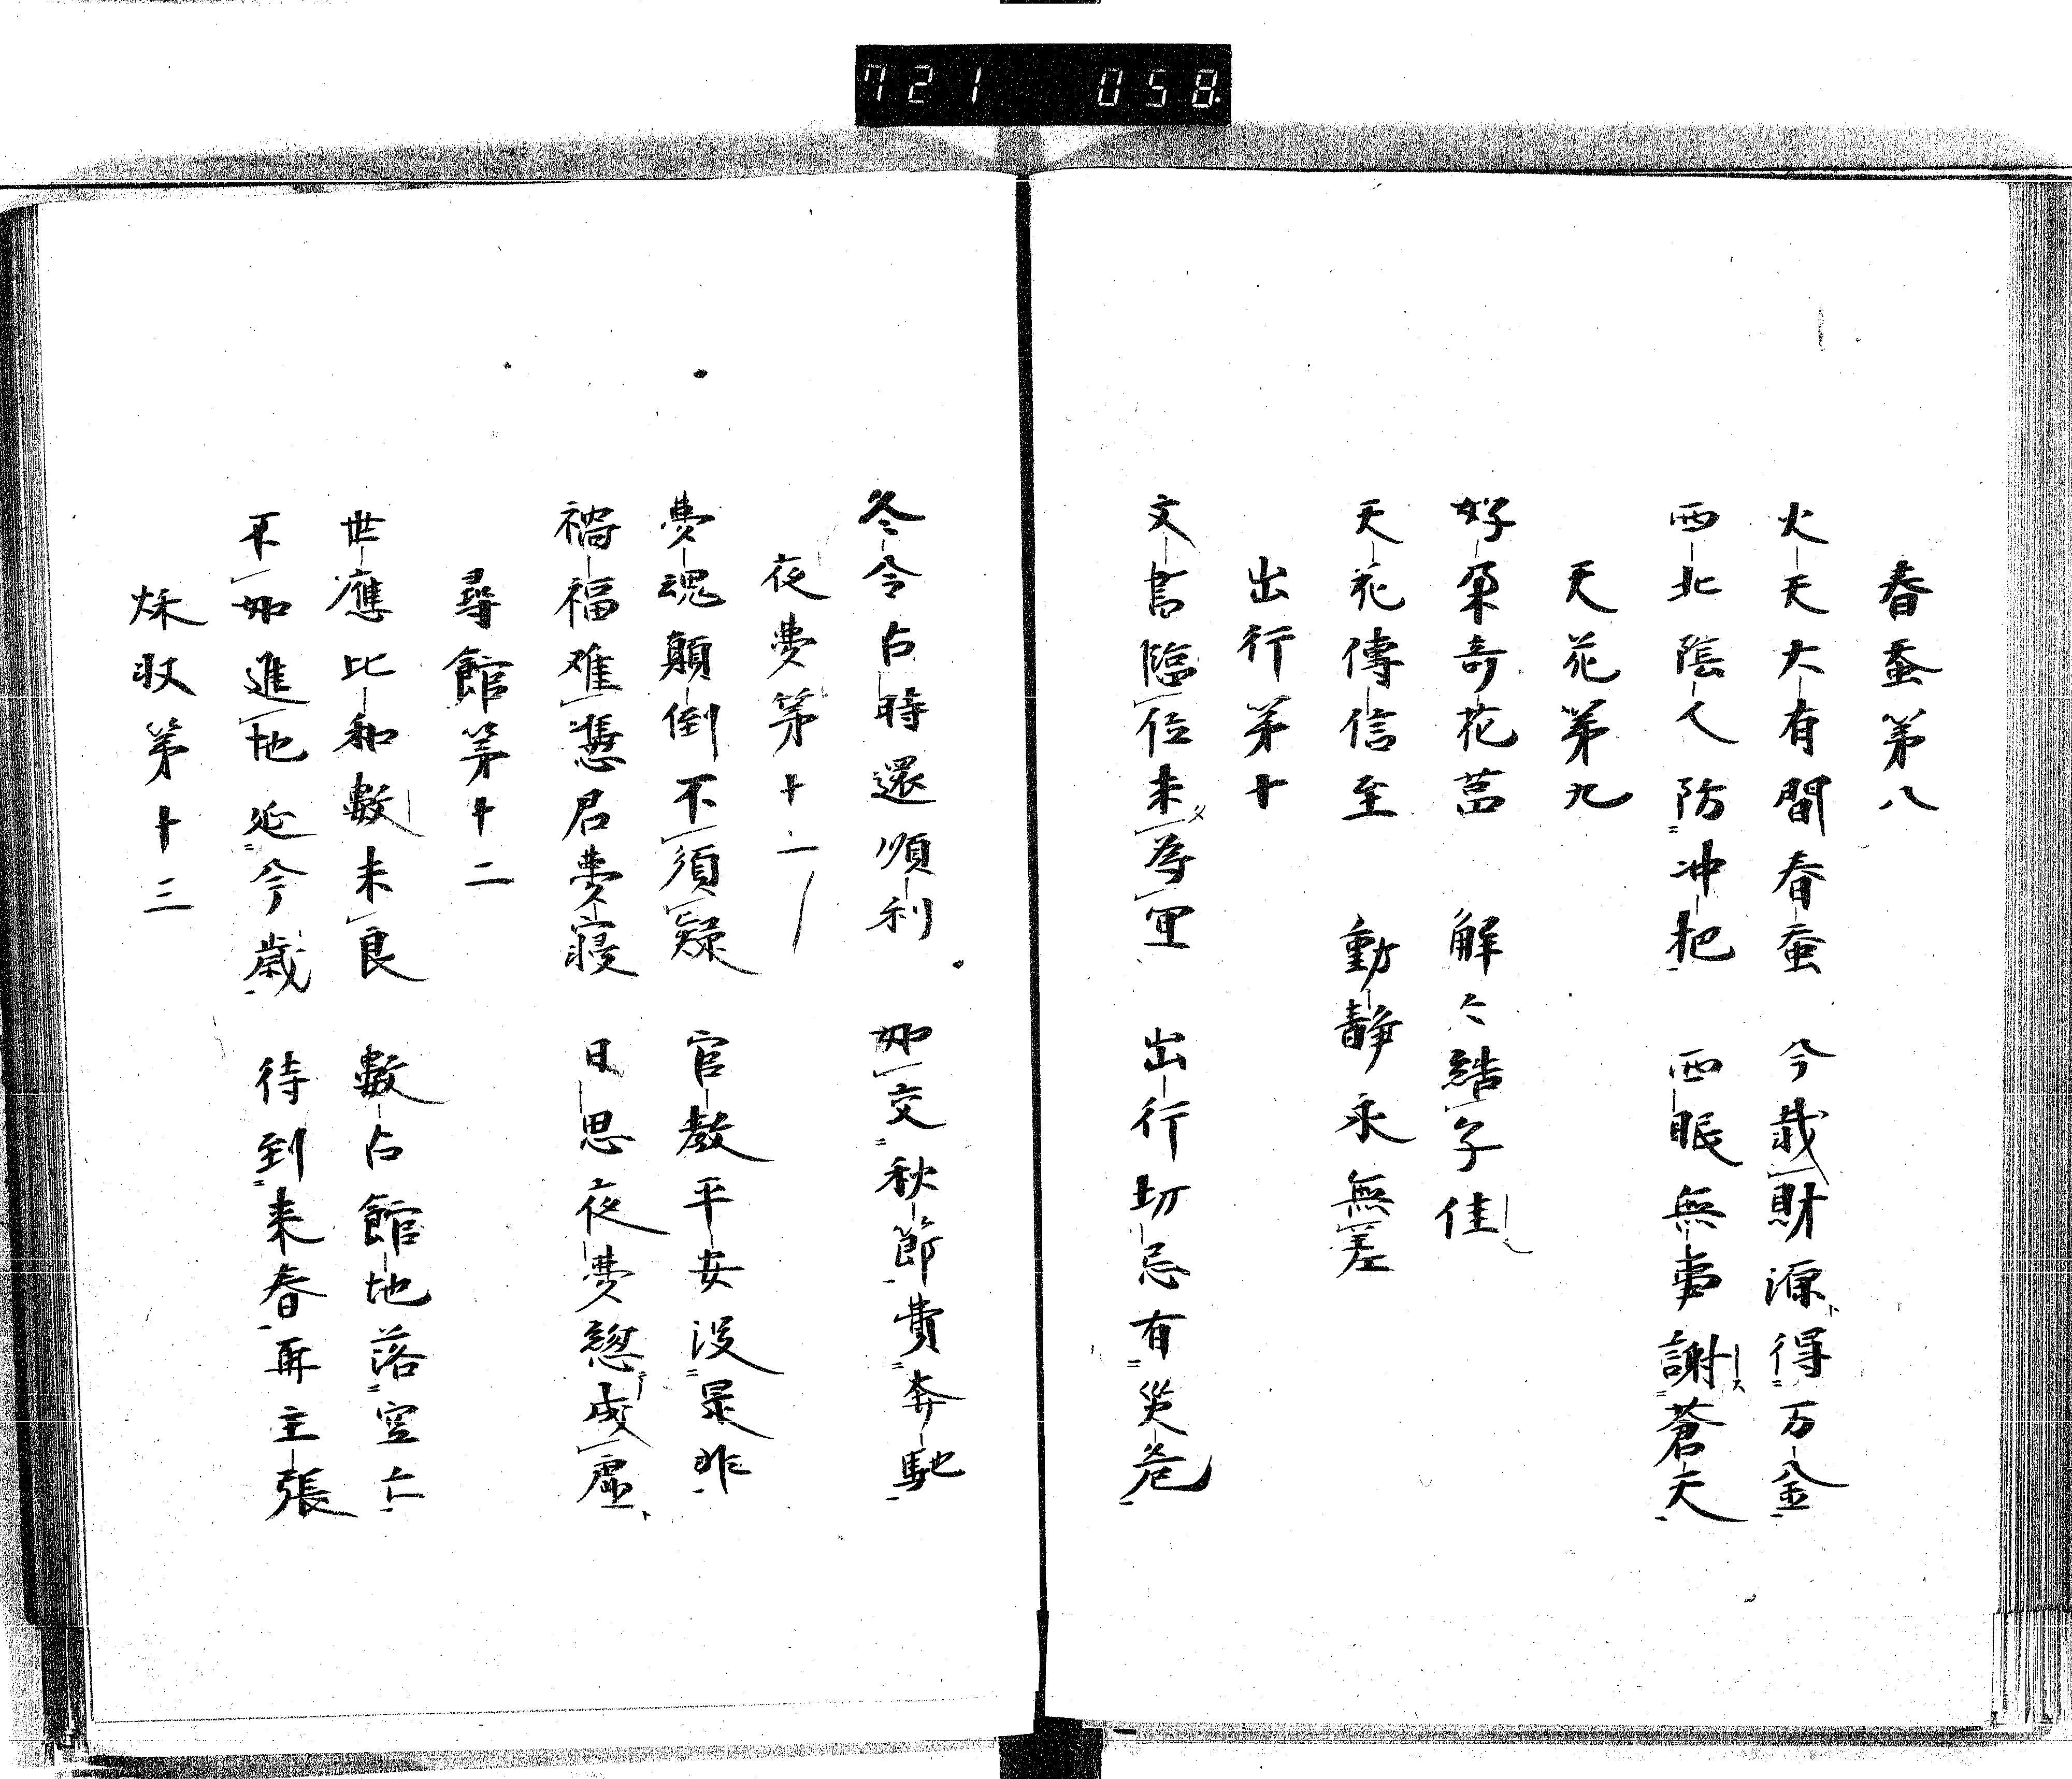 721 058
春蚕第八
火天大有間春蚕 今歳財源得万金
西北陰人防冲把 西眠無事謝蒼天
天花第九
好朶奇花菖 解々結子佳
天花傳信至 動静永無差
出行第十
文書臨位未為宜 出行切忌有災危
冬令占時還順利 如交秋節費奔馳
夜夢第十一
夢魂顛倒不須疑 官教平安没是非
禍福难憑君夢寝 日思夜夢総成虚
尋館第十二
世應比和數未良 數占館地落空亡
不如進地延今歳 待到来春再主張
秌収第十三